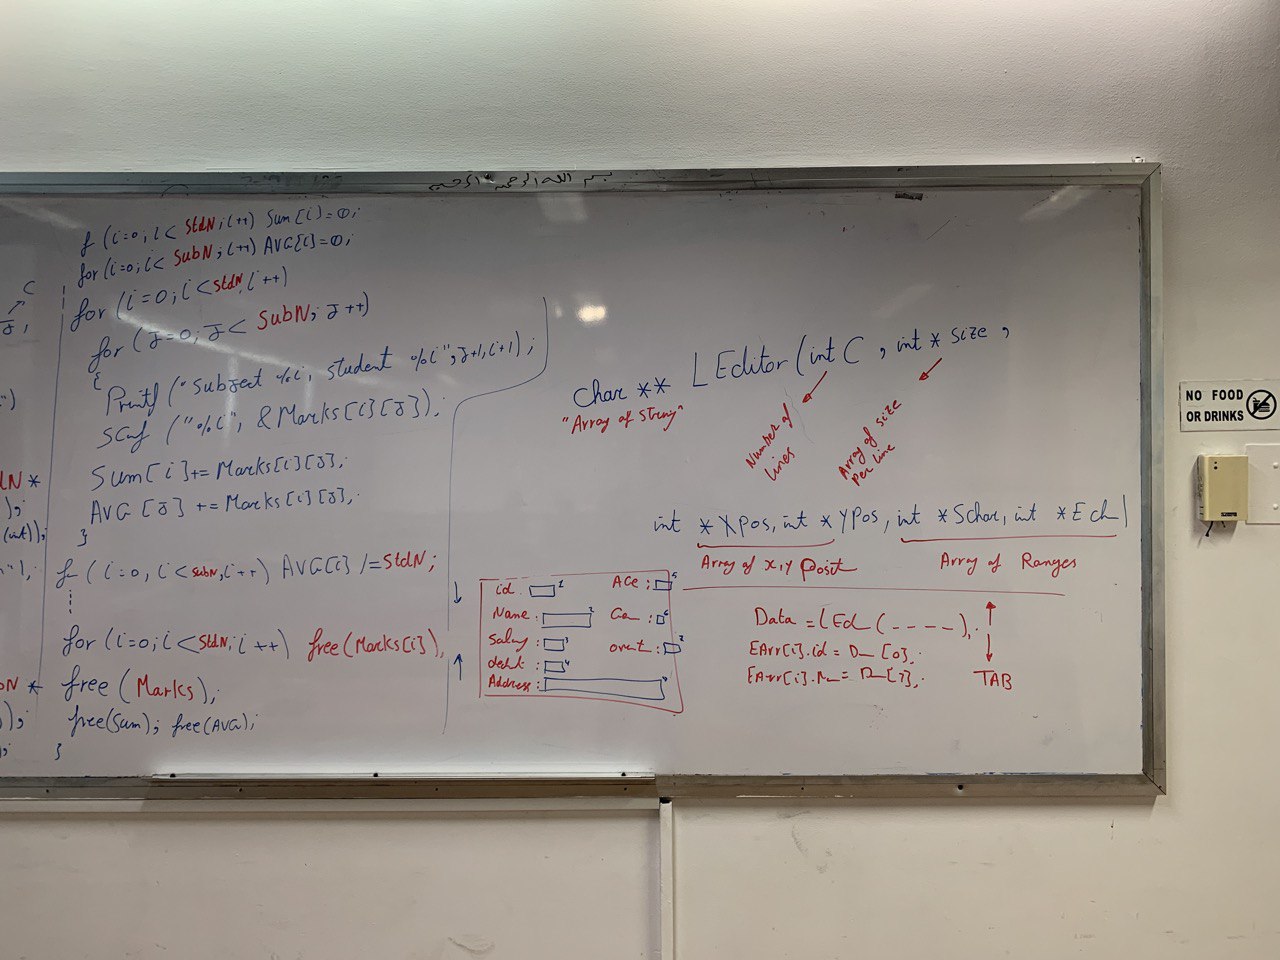 بسم الله الرحمن الرحيم
f (i=0; i< StdN; i++) Sum[i]=0;
for (i=0; i< SubN; i++) AVG[i]=0;
for (i=0; i<StdN; i++)
for (J=0; J< SubN; J++)
{
Printf ("Subject %i, student %i", J+1, i+1);
Scnf ("%i", &Marks[i][J]);
Sum[i]+= Marks[i][J];
AVG[J] += Marks[i][J];
}
f (i=0, i<SubN, i++) AVG[i] /=StdN;
for (i=0; i< StdN; i++) free(Marks[i]);
free (Marks);
free(Sum); free(AVG);
}
C
J,
")
dN *
);
(int));
"),
DN *
);
);
char ** LEditor (int C, int * size,
"Array of String"
Number of lines
Array of size per line
int * XPos, int * YPos, int * Schar, int * Ech
Array of x,y Posit
Array of Ranges
id 1
Age: 5
Name: 2
Ge: 6
Salary: 3
overt: 7
debt: 4
Address:
Data = LEd (----);
EArr[i].id = D [0];
EArr[i].N = D [1];
TAB
NO FOOD
OR DRINKS